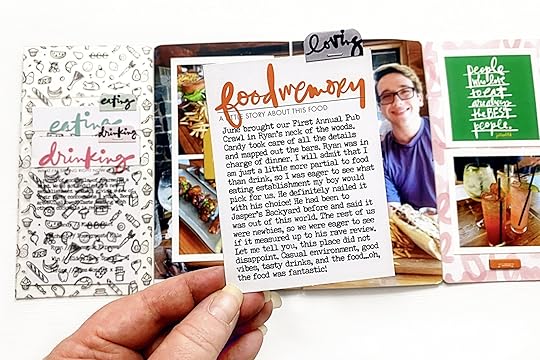 loving
eating
eating
drinking
drinking
food memory
A LITTLE STORY ABOUT THIS FOOD
June brought our First Annual Pub
Crawl in Ryan's neck of the woods.
Candy took care of all the details
and mapped out the bars. Ryan was in
charge of dinner. I will admit that I
am just a little more partial to food
than drink, so I was eager to see what
eating establishment my boy would
pick for us. He definitely nailed it
with his choice! He had been to
Jasper's Backyard before and said it
was out of this world. The rest of us
were newbies, so we were eager to see
if it measured up to his rave review.
Let me tell you, this place did not
disappoint. Casual environment, good
vibes, tasty drinks, and the food...oh,
the food was fantastic!
people
who love
to eat
are always
the BEST
people.